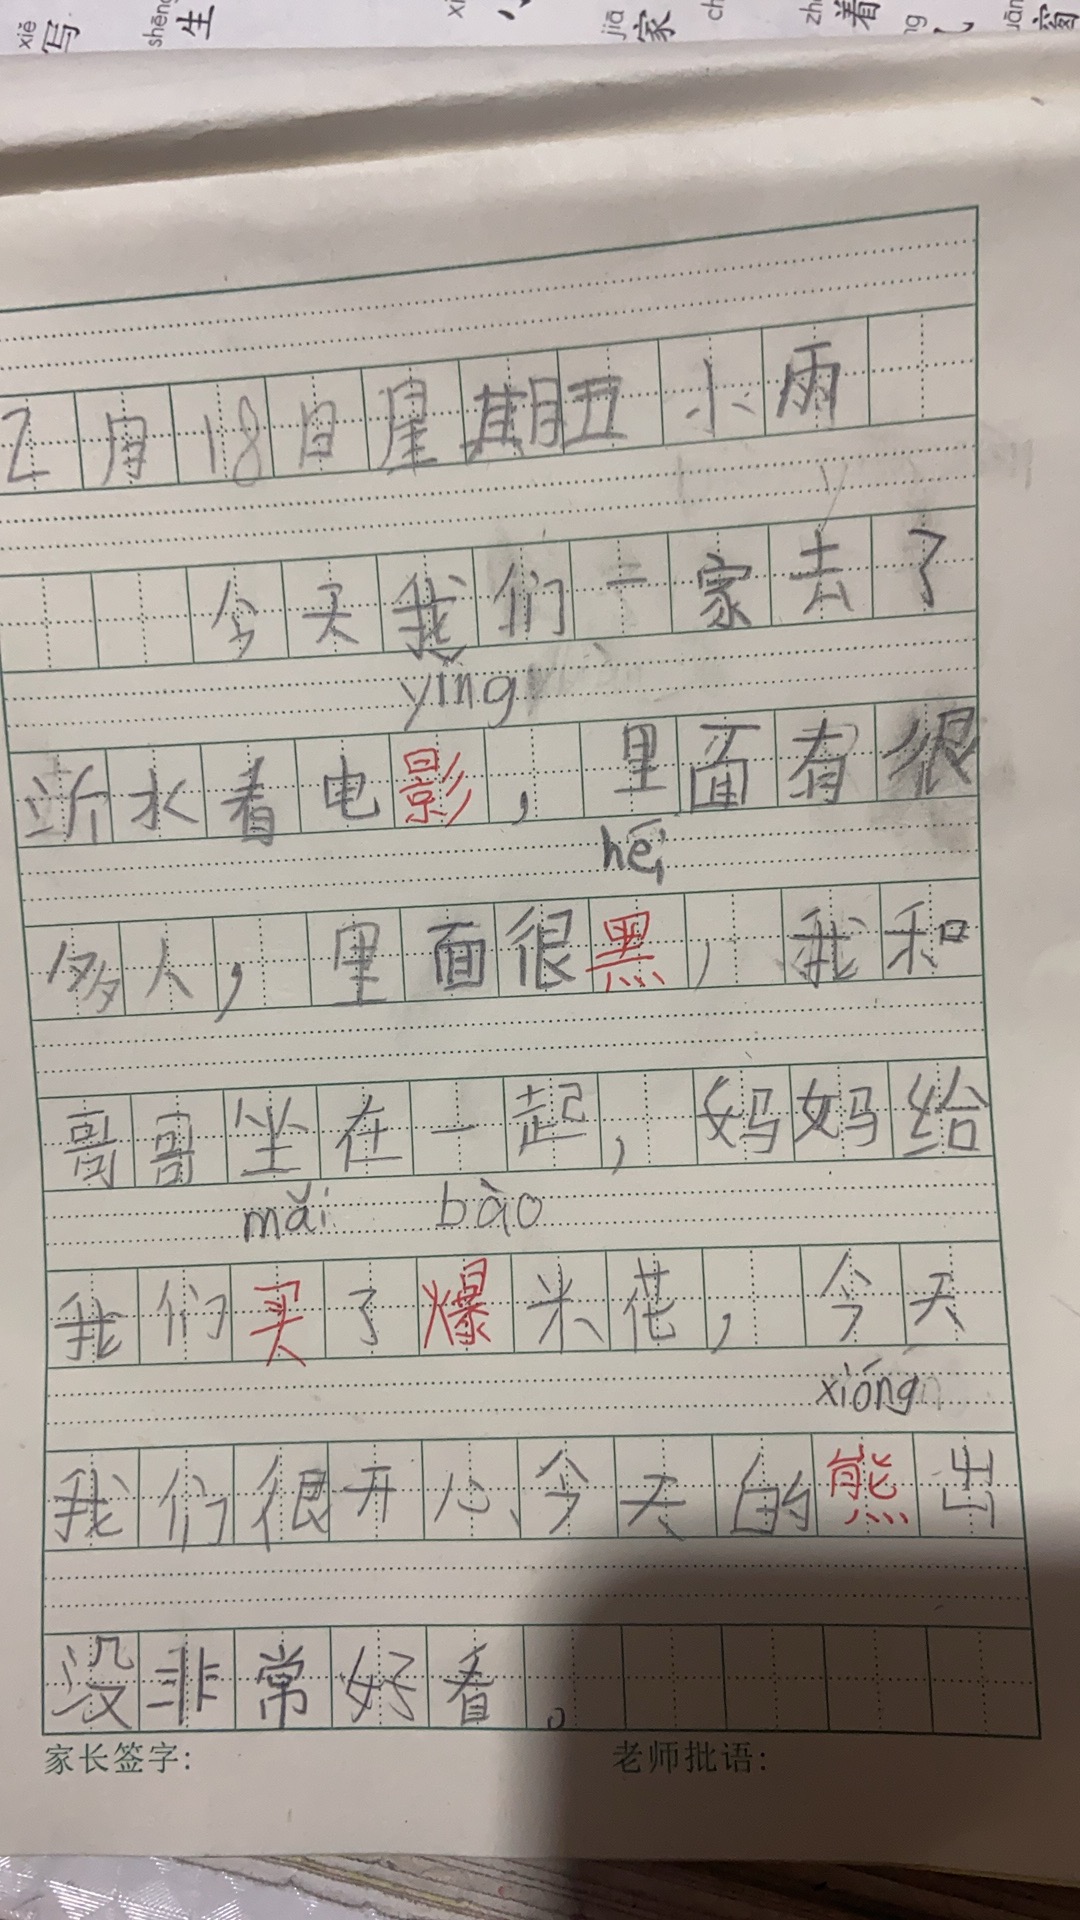 xiě shēng jiā
写 生 家 着 窗
2月18日星期五小雨
今天我们一家去了
yǐng
浙水看电影，里面有很
hēi
多人，里面很黑，我和
哥哥坐在一起，妈妈给
mǎi bào
我们买了爆米花，今天
xióng
我们很开心、今天的熊出
没非常好看。
家长签字: 老师批语: